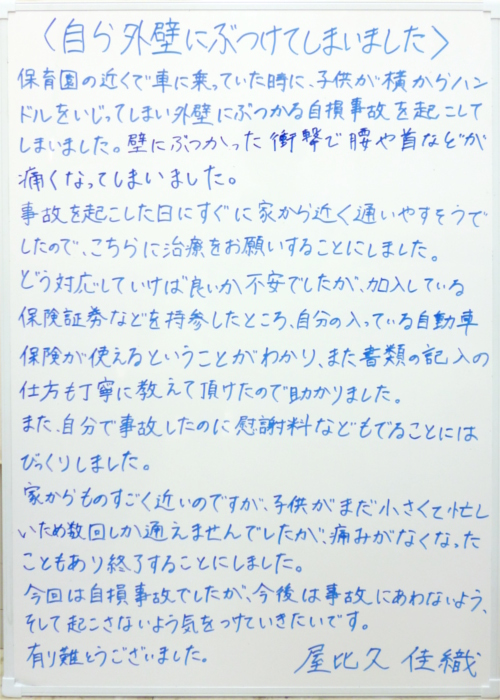 〈自ら外壁にぶつけてしまいました〉
保育園の近くで車に乗っていた時に、子供が横からハン
ドルをいじってしまい外壁にぶつかる自損事故を起こして
しまいました。壁にぶつかった衝撃で腰や首などが
痛くなってしまいました。
事故を起こした日にすぐに家から近く通いやすそうで
したので、こちらに治療をお願いすることにしました。
どう対応していけば良いか不安でしたが、加入している
保険証券などを持参したところ、自分の入っている自動車
保険が使えるということがわかり、また書類の記入の
仕方も丁寧に教えて頂けたので助かりました。
また、自分で事故したのに慰謝料などもでることには
びっくりしました。
家からものすごく近いのですが、子供がまだ小さくて忙し
いため数回しか通えませんでしたが、痛みがなくなった
こともあり終了することにしました。
今回は自損事故でしたが、今後は事故にあわないよう、
そして起こさないよう気をつけていきたいです。
有り難とうございました。 屋比久 佳織